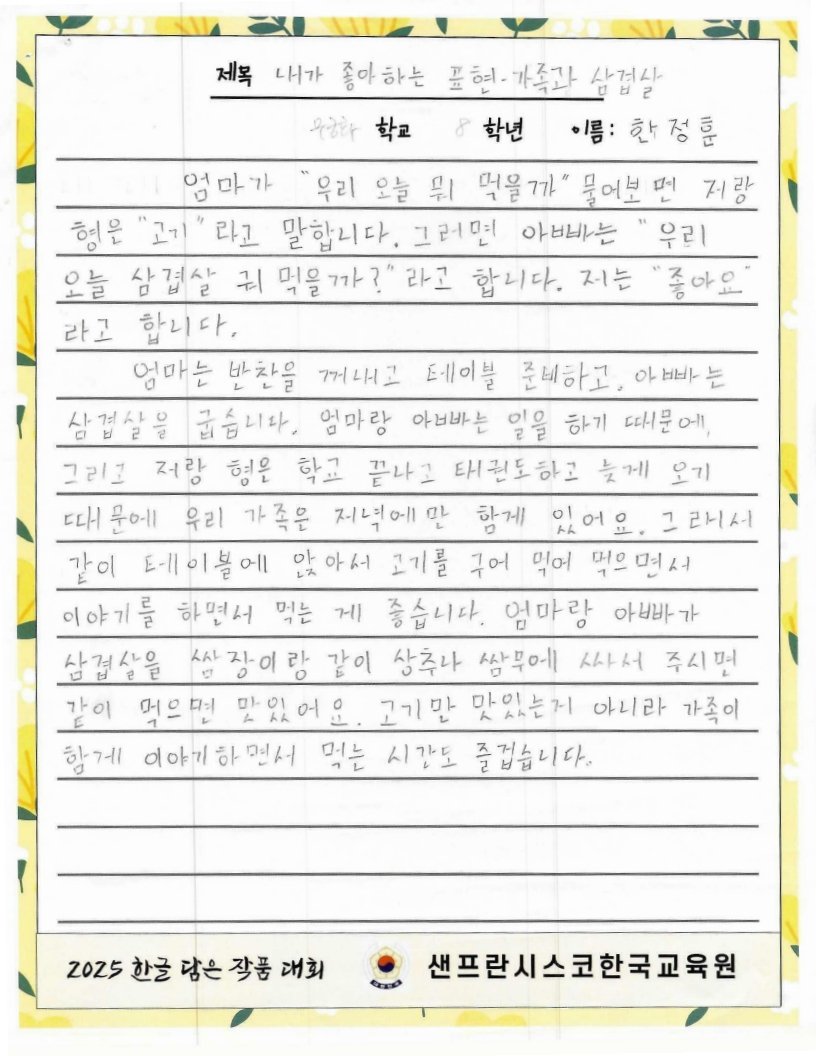 제목 내가 좋아하는 표현-가족과 삼겹살
무궁화 학교 8 학년 이름: 한정훈
엄마가 "우리 오늘 뭐 먹을까" 물어보면 저랑
형은 "고기" 라고 말합니다. 그러면 아빠는 "우리
오늘 삼겹살 궈 먹을까?" 라고 합니다. 저는 "좋아요"
라고 합니다.
엄마는 반찬을 꺼내고 테이블 준비하고, 아빠는
삼겹살을 굽습니다. 엄마랑 아빠는 일을 하기 때문에,
그리고 저랑 형은 학교 끝나고 태권도하고 늦게 오기
때문에 우리 가족은 저녁에만 함께 있어요. 그래서
같이 테이블에 앉아서 고기를 구어 먹어 먹으면서
이야기를 하면서 먹는 게 좋습니다. 엄마랑 아빠가
삼겹살을 쌈장이랑 같이 상추나 쌈무에 싸서 주시면
같이 먹으면 맛있어요. 고기만 맛있는거 아니라 가족이
함게 이야기하면서 먹는 시간도 즐겁습니다.
2025 한글 담은 작품 대회
샌프란시스코한국교육원